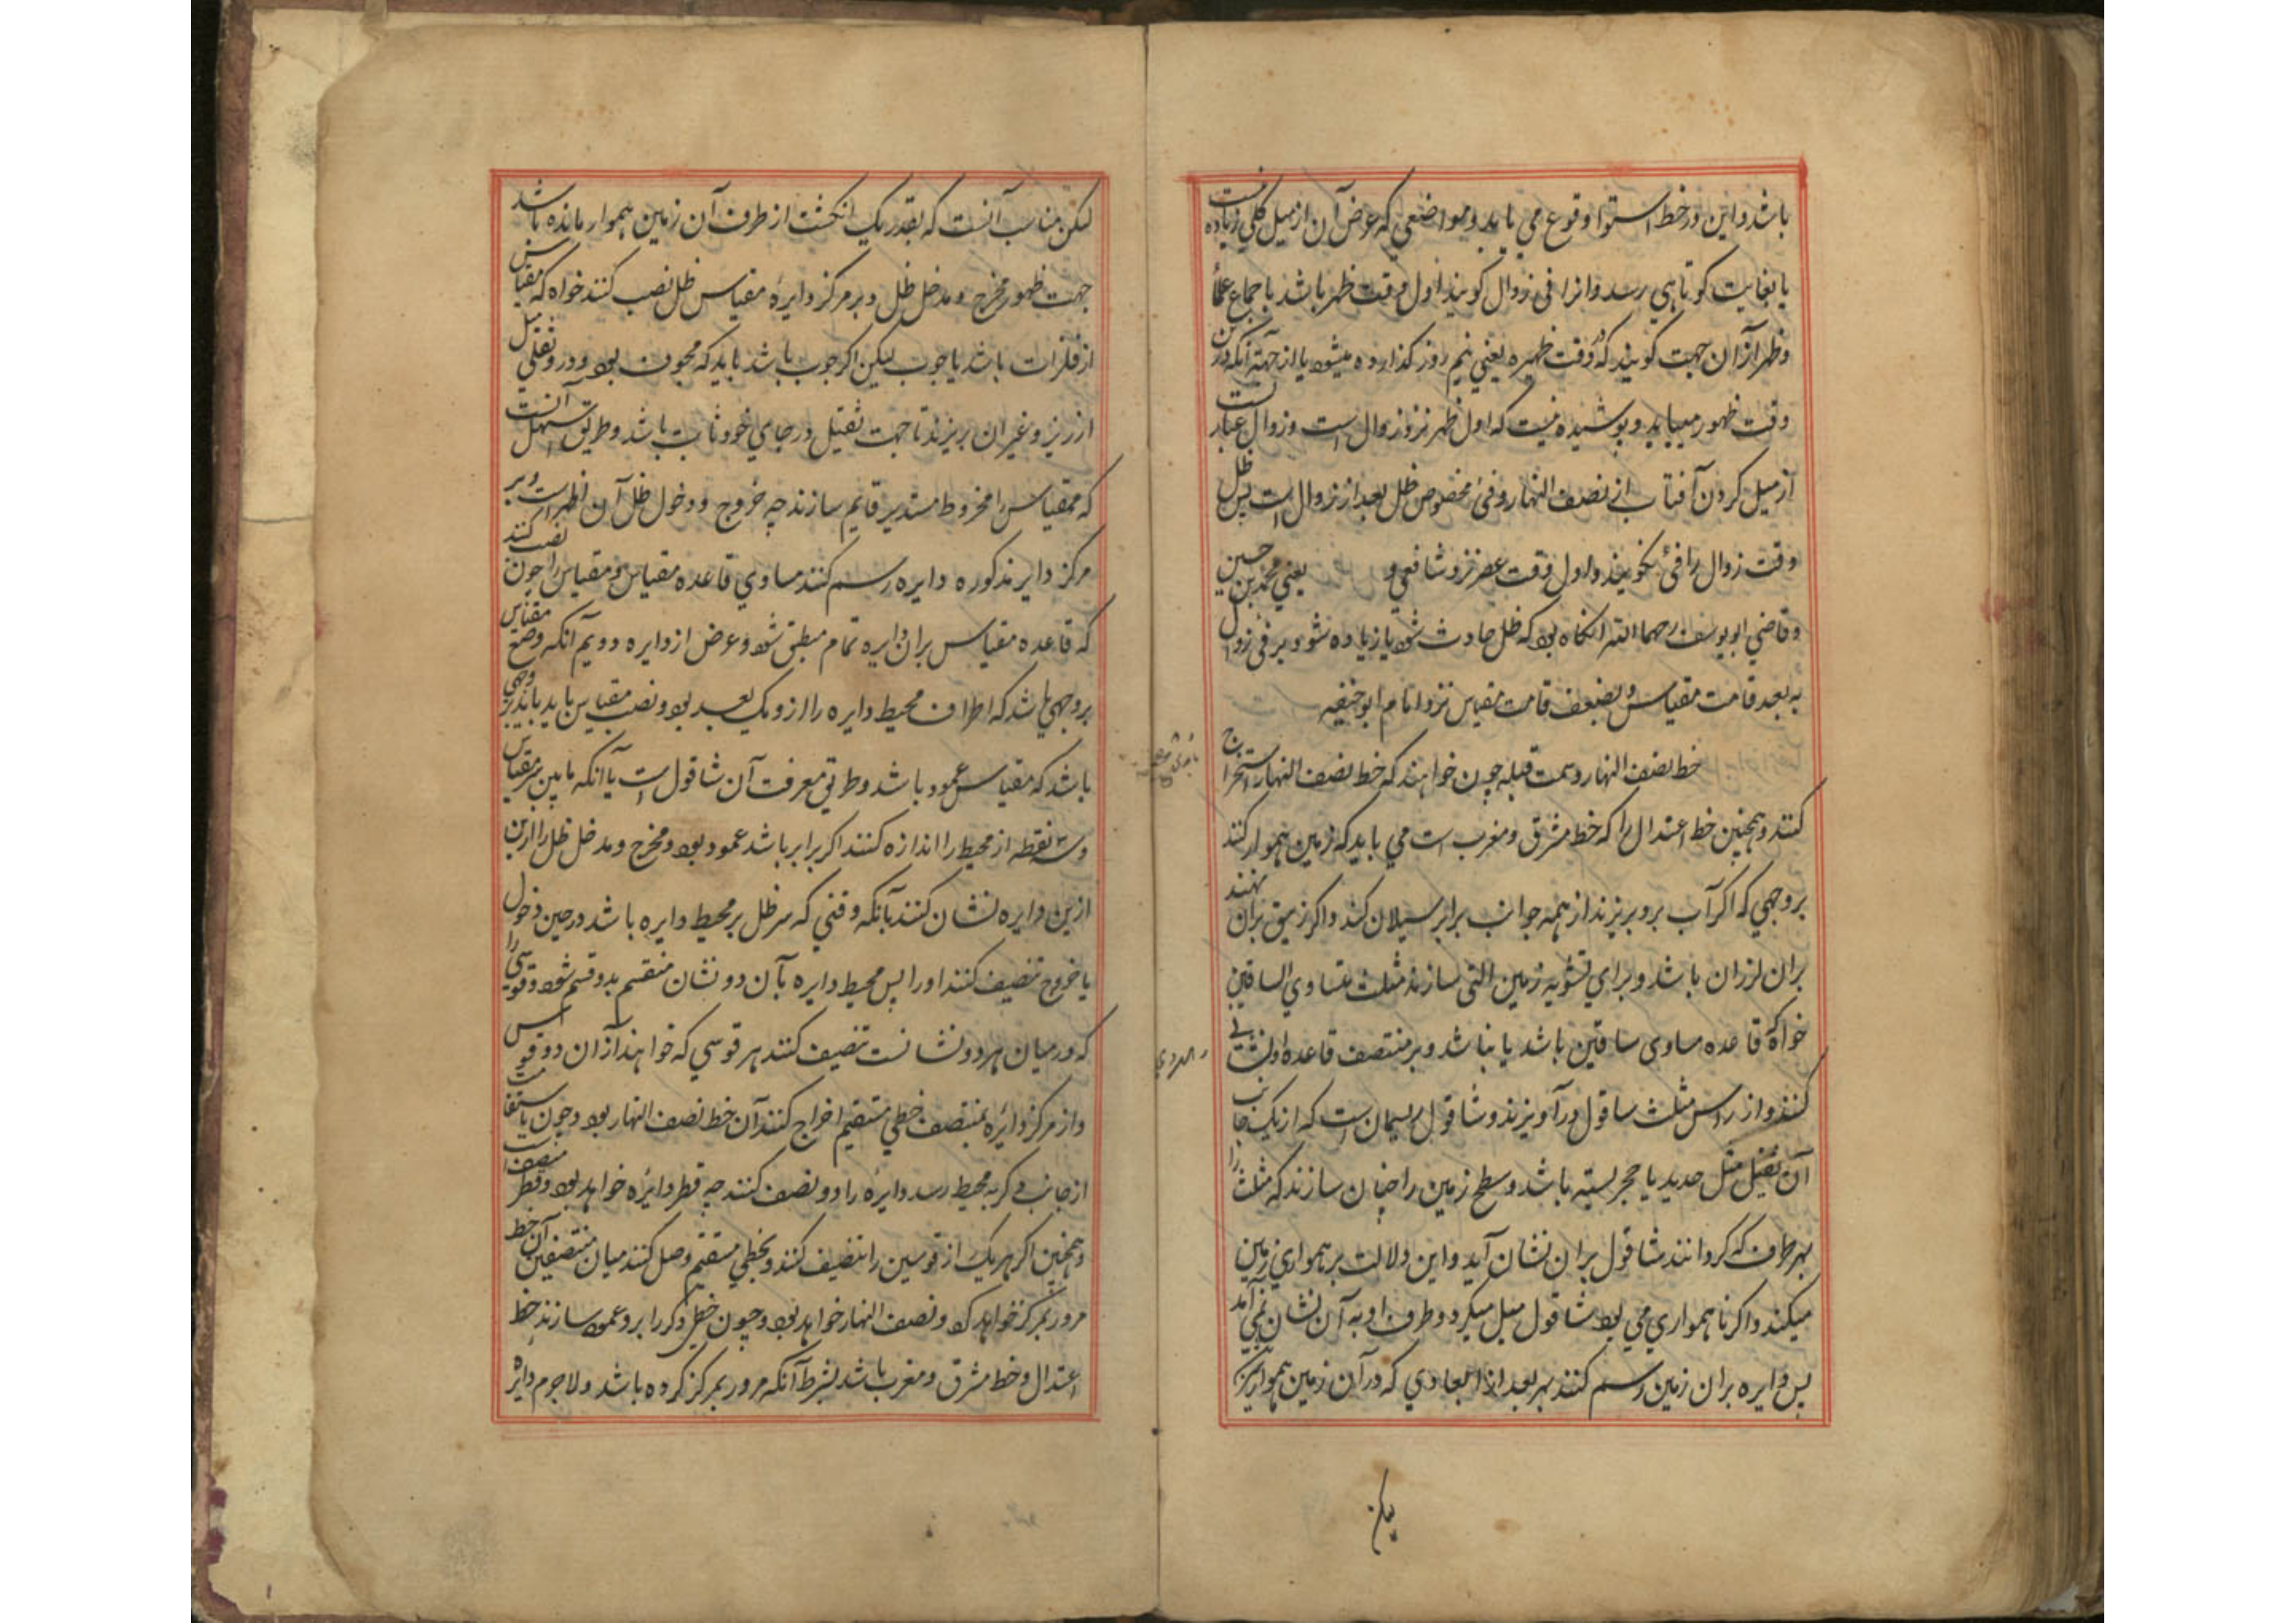 باشد و این در خط استوا وقوع می یابد و مواضعی که عرض آن از میل کلی زیاده نیست
یا بغایت کوتاهی رسد و انرا فی زوال کویند اول وقت ظهر باشد باجماع علما
و ظهر از آن جهت کویند که در وقت ظهیره یعنی نیم روز کذارده میشود یا از جهة آنکه درین
وقت ظهور مییابد و پوشیده نیست که اول ظهر نزد زوال است و زوال عبارتست
از میل کردن آفتاب از نصف النهار و فئ مخصوص ظل بعد از زوال است پس ظل
وقت زوال را فئ نکویند و اول وقت عصر نزد شافعی و یعنی محمد بن حسین
و قاضی ابو یوسف رحمهما الله انکاه بود که ظل حادث شود یا زیاده شود بر فئ زوال
به بعد قامت مقیاس و بضعف قامت مقیاس نزد امام ابو حنیفه
خط نصف النهار و سمت قبله چون خواهند که خط نصف النهار استخراج
کنند و همچنین خط اعتدال را که خط مشرق و مغرب است می باید که زمین هموار کنند
بر وجهی که اکر آب برو بریزند از همه جوانب برابر سیلان کند و اکر زیبق بران نهند
بران لرزان باشد و برای تسویه زمین التی سازند مثلث متساوی الساقین
خواه که قاعده مساوی ساقین باشد یا نباشد و بر منتصف قاعده او نشانی
کنند و از راس مثلث ساقول در آویزند و شاقول ریسمان است که از یک جانب
آن ثقیل مثل حدید یا حجر بسته باشد و سطح زمین را چنان سازند که مثلث را
بهر طرف که کردانند شاقول بران نشان آید و این دلالت بر همواری زمین
میکند و اکر ناهمواری می بود شاقول میل میکرد و طرف او به آن نشان نمی آمد
پس دایره بران زمین رسم کنند بهر بعد از ابعادی که در آن زمین هموار
لیکن
لیکن مناسب آنست که بقدر یک انکشت از طرف آن زمین هموار مانده باشد
جهت ظهور مخرج و مدخل ظل و بر مرکز دایره مقیاس ظل نصب کنند خواه که مقیاس
از فلزات باشد یا چوب لیکن اکر چوب باشد باید که مجوف بود و درو ثقلی مثل
ارزیز و غیر ان بریزند تا جهت ثقیل در جای خود ثابت باشد و طریق اسهل آنست
که مقیاس را مخروط مستدیر قایم سازند چه خروج و دخول ظل آن اظهر است و بر
مرکز دایره مذکوره دایره رسم کنند مساوی قاعده مقیاس و مقیاس را چون نصب کنند
که قاعده مقیاس بران دایره تمام منطبق شود و عرض از دایره دویم آنکه وضع مقیاس
بر وجهی باشد که اطراف محیط دایره را ازو یک بعد بود و نصب مقیاس باید بر وجهی
باشد که مقیاس عمود باشد و طریق معرفت آن شاقول است یا آنکه مابین سر مقیاس
و سه نقطه از محیط را اندازه کنند اکر برابر باشد عمود بود و مخرج و مدخل ظل را ازین
ازین دایره نشان کنند بآنکه وقتی که سر ظل بر محیط دایره باشد در حین دخول
یا خروج تنصیف کنند او را پس محیط دایره بآن دو نشان منقسم بدو قسم شود و قوسی را
که در میان هر دو نشانست تنصیف کنند هر قوسی که خواهند از آن دو قوس
و از مرکز دایره بمنتصف خطی مستقیم اخراج کنند آن خط نصف النهار بود و چون باستقامت
از جانب دیکر به محیط رسد دایره را دو نصف کند چه قطر دایره خواهد بود و قطر منصف است
و همچنین اکر هر یک از قوسین را تنصیف کنند و بخطی مستقیم وصل کنند میان منتصفین آن خط
مرور بمرکز خواهد کرد و نصف النهار خواهد بود و چون خطی دیکر را برو عمود سازند خط
اعتدال و خط مشرق و مغرب باشد بشرط آنکه مرور بمرکز کرده باشد و لاجرم دایره